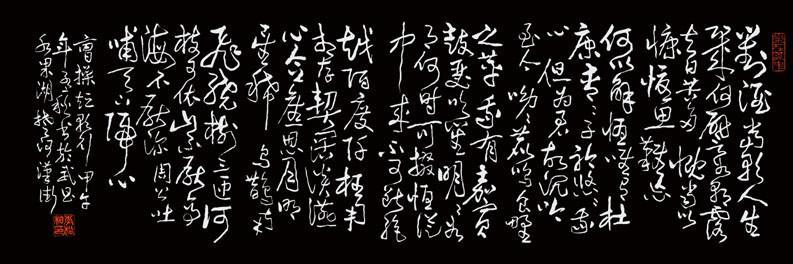 對酒當歌人生
幾何譬如朝露
去日苦多慨當以
慷憂思難忘
何以解憂唯有杜
康青青子衿悠悠我
心但為君故沉吟
至今呦呦鹿鳴食野
之苹我有嘉賓
鼓瑟吹笙明明如
月何時可掇憂從
中來不可斷絕
越陌度阡枉用
相存契闊談讌
心念舊恩月明
星稀烏鵲南
飛繞樹三匝何
枝可依山不厭高
海不厭深周公吐
哺天下歸心
曹操短歌行甲午
年書於武昌
水果湖